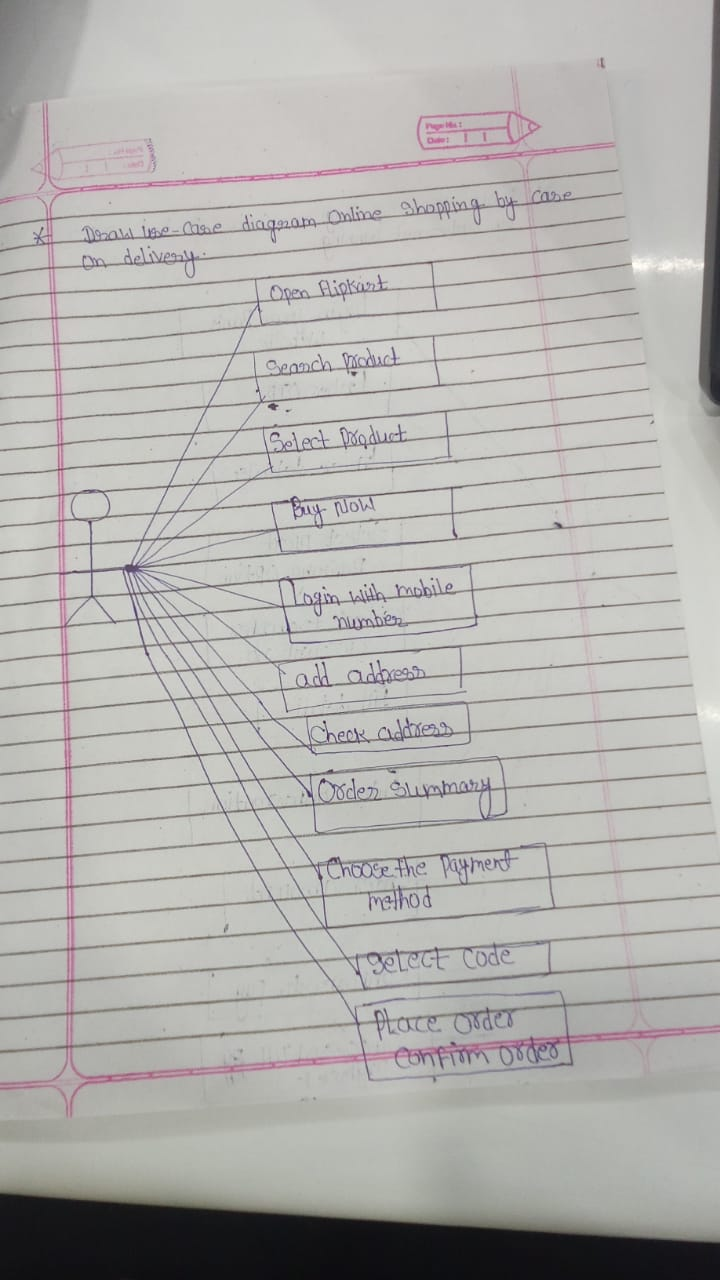 Page No.:
Date:
* Draw use-case diagram Online shopping by case
on delivery.
Open Flipkart
Search product
Select product
Buy Now
Login with mobile
number
add address
Check address
Order Summary
Choose the Payment
method
Select Code
Place order
Confirm order